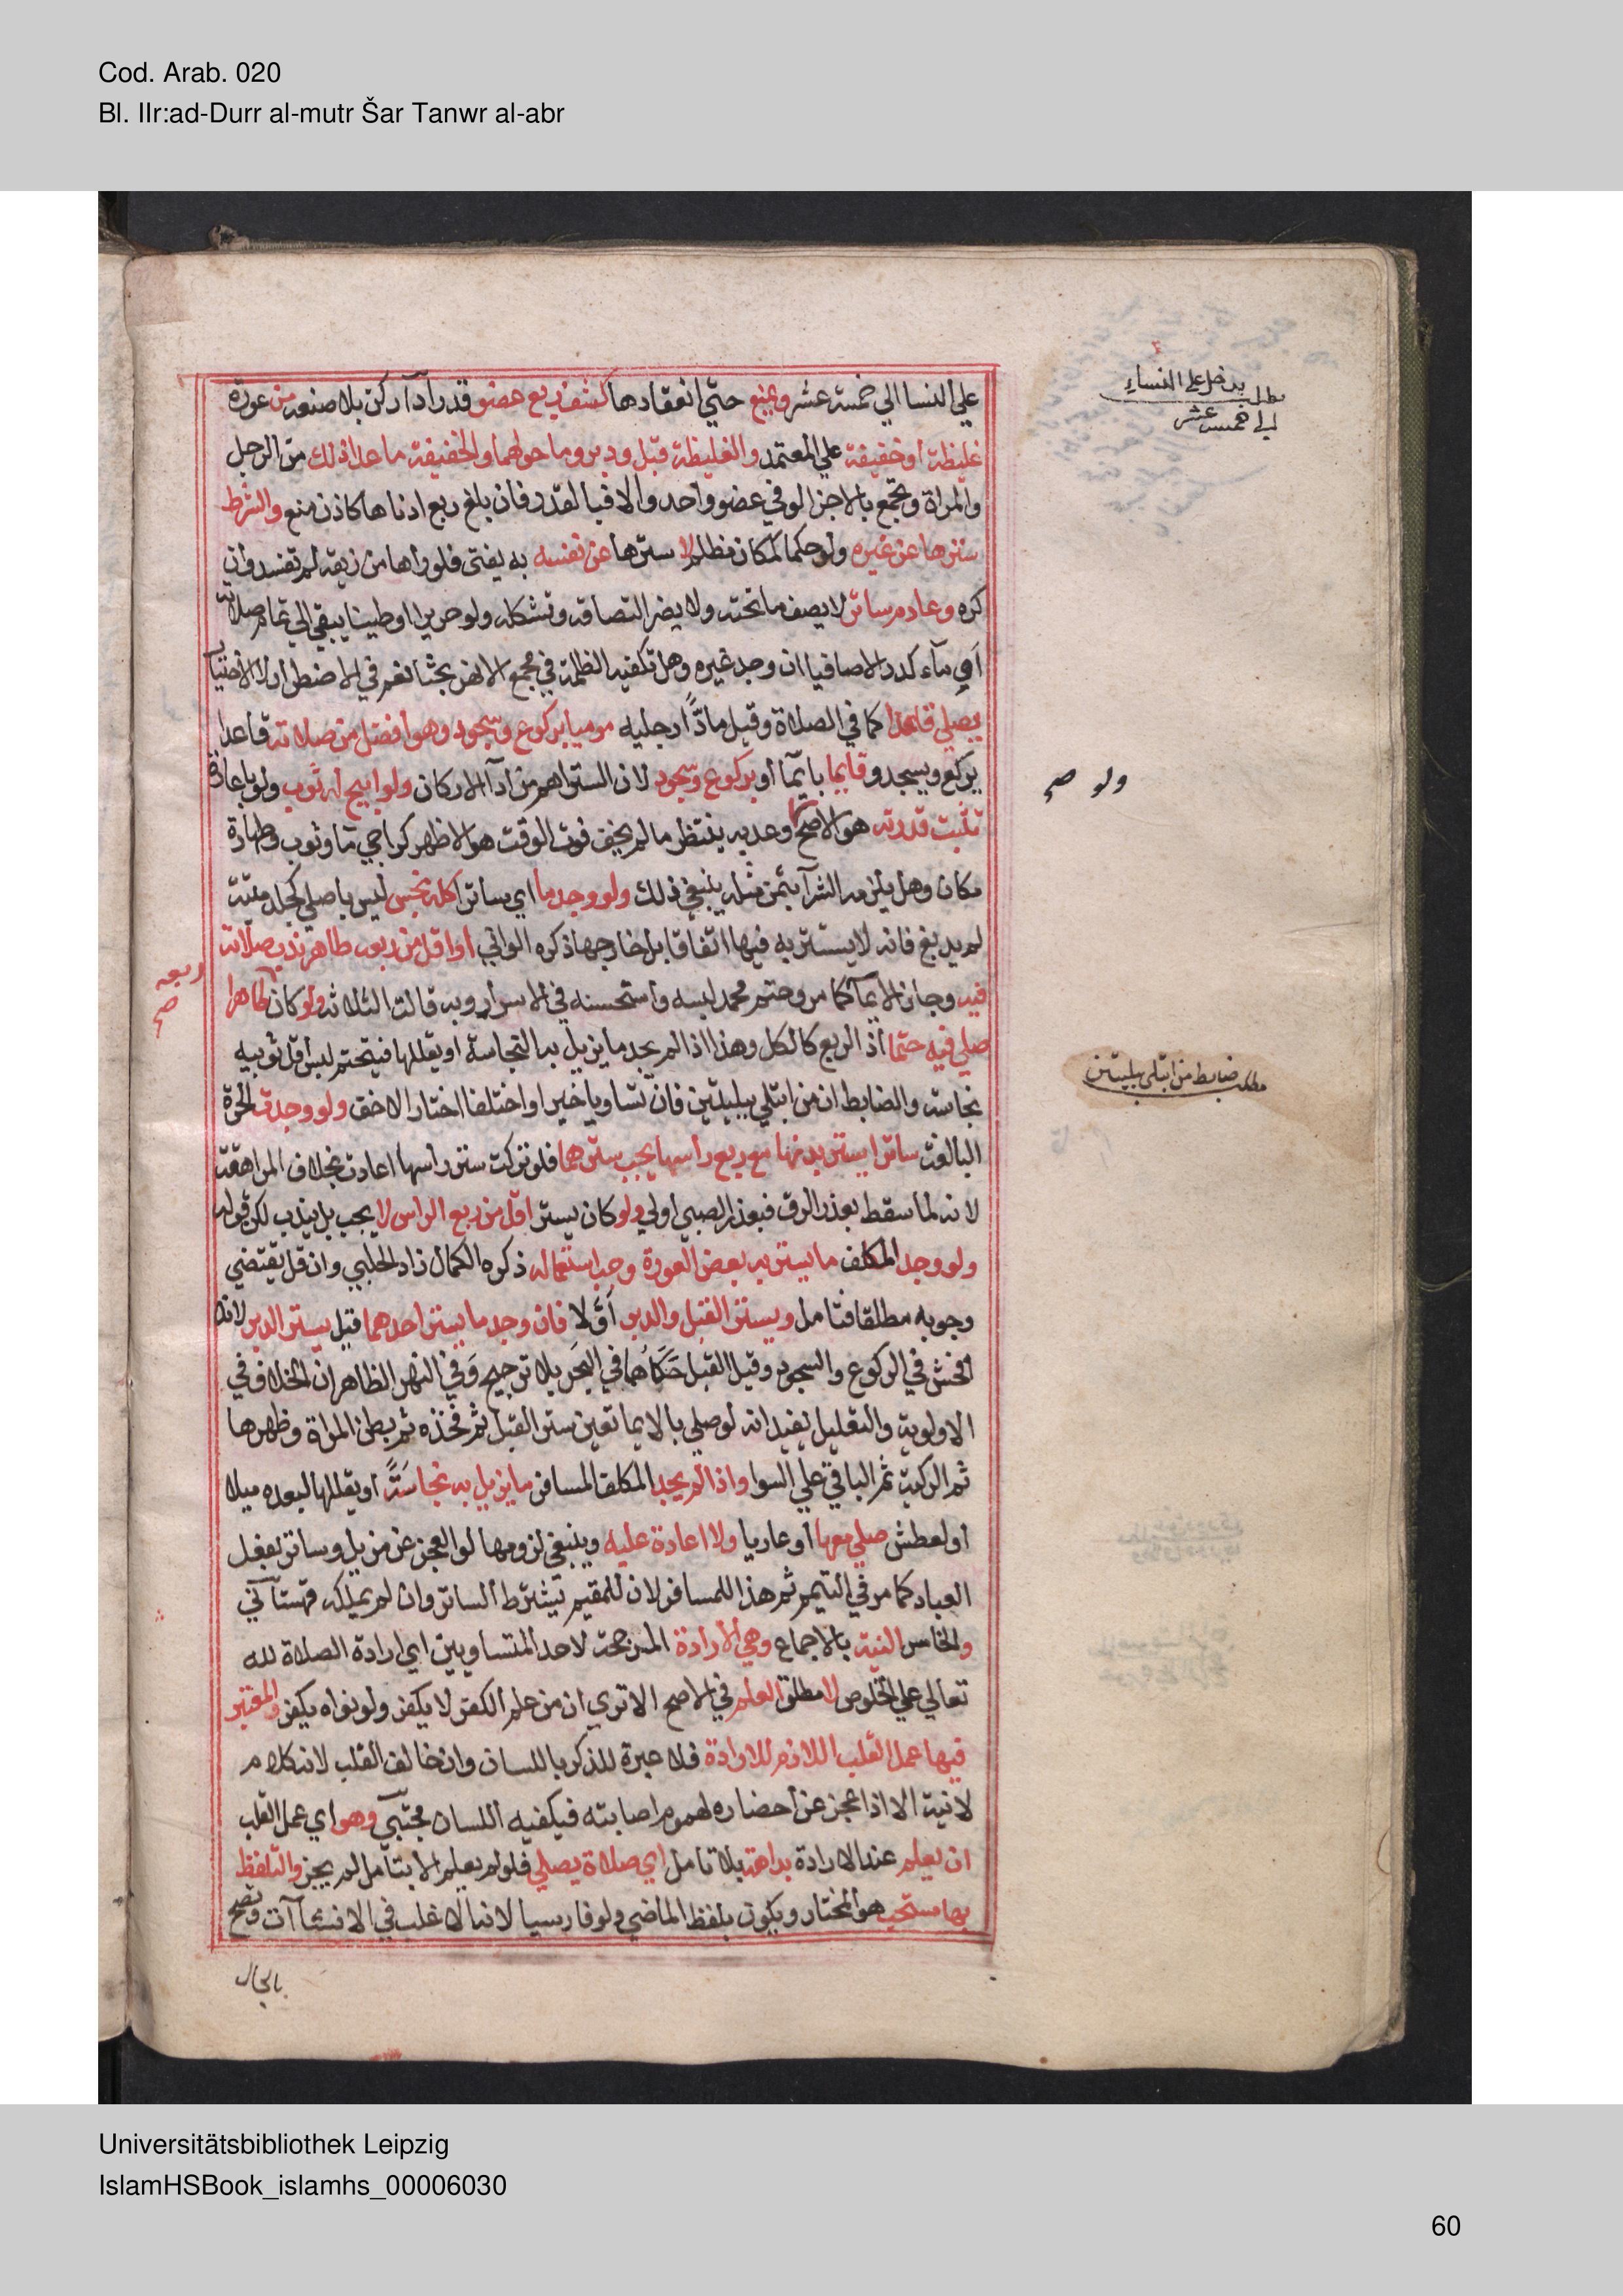 Cod. Arab. 020
Bl. IIr:ad-Durr al-mutr Šar Tanwr al-abr
يدخل على النساء
مطلب
الى خمس عشر
علي النسا الي خمسة عشر ويمنع حتي انعقادها كشف ربع عضو قدر ادآ ركن بلا صنعه من عورة
غليظة أو خفيفة علي المعتمد والغليظة قبل ودبر وما حولهما والخفيفة ما عدا ذلك من الرجل
والمراة وتجمع بالاجزا لو في عضو واحد والا فبالقدر فان بلغ ربع ادناها كاذن منع والشرط
سترها عن غيره ولو حكما كمكان مظلم لا سترها عن نفسه به يفتى فلو راها من زيقه لم تفسد وان
كره وعادم ساتر لا يصف ما تحته ولا يضر التصاقه وتشكله ولو حريرا او طينا يبقي الي تمام صلاته
أو مآء كدرا لا صافيا ان وجد غيره وهل تكفيه الظلمة في مجمع الانهر بحثا نعم في الاضطرار لا الاختيار
يصلي قاعدا كما في الصلاة وقيل مادًّا رجليه موميا بركوع وسجود وهو أفضل من صلاته قاعدا
يركع ويسجد وقايما بايمآ أو بركوع وسجود لان الستر اهم من ادآ الاركان ولو ابيح له ثوب ولو باعارة
ولو صح
ثبتت قدرته هو الاصح وعد به ينتظر ما لم يخف فوت الوقت هو الاظهر كراجي مآ وثوب وطهارة
مكان وهل يلزمه الشرآ بثمن مثله ينبغي ذلك ولو وجد ما اي ساترا كله نجس ليس باصلي كجلد ميتة
لم يدبغ فانه لا يستتر به فيها اتفاقا بل خارجها ذكره الواني أو اقل من ربعه طاهر ندب صلاته
ربعه
صح
فيه وجاز الايمآ كما مر وحتم محمد لبسه واستحسنه في الاسرار وبه قالت الثلاثة ولو كان طاهرا
صلي فيه حتما أذ الربع كالكل وهذا اذا لم يجد ما يزيل به النجاسة او يقللها فيتحتم لبس أقل ثوبيه
مطلب ضابط من ابتلي ببليتين
نجاسة والضابط ان من ابتلي ببليتين فان تساويا خير او اختلفا اختار الاخف ولو وجدت الحرة
البالغة ساترا يستر بدنها مع ربع راسها يجب سترهما فلو تركت ستر راسها اعادت بخلاف المراهقة
لانه لما سقط بعذر الرق فبعذر الصبي اولي ولو كان يستر اقل من ربع الراس لا يجب بل يندب لكن قوله
ولو وجد المكلف ما يستر به بعض العورة وجب استعماله ذكره الكمال زاد الحلبي وان قل يقتضي
وجوبه مطلقا فتامل ويستر القبل والدبر أوَّلا فان وجد ما يستر احدهما قيل يستر الدبر لانه
افحش في الركوع والسجود وقيل القبل حَكَاهُما في البَحر بلا ترجيح وَفي النهر الظاهر ان الخلاف في
الاولوية والتعليل يفيد انه لو صلي بالايما تعين ستر القبل ثم فخذه ثم بطن المراة وظهرها
ثم الركبة ثم الباقي علي السوا واذا لم يجد المكلف المسافر ما يزيل به نجاسَتًَه او يقللها لبعده ميلا
او لعطش صلي معها أو عاريا ولا اعادة عليه وينبغي لزومها لو العجز عن مزيل وساتر بفعل
العباد كما مر في التيمم ثم هذا للمسافر لان للمقيم يشترط الساتر وان لم يملكه قهستآني
والخامس النية بالاجماع وهي الارادة المرجحة لاحد المتساويين اي ارادة الصلاة لله
تعالي علي الخلوص لا مطلق العلم في الاصح الا تري ان من علم الكفر لا يكفر ولو نواه يكفر والمعتبر
فيها عمل القلب اللازم للارادة فلا عبرة للذكر باللسان وان خالف القلب لانه كلام
لا نية الا اذا عجز عن أحضاره لهموم اصابته فيكفيه اللسان مجتبي وهو اي عمل القلب
ان يعلم عند الارادة بداهة بلا تامل اي صلاة يصلي فلو لم يعلم الا بتامل لم يجز والتلفظ
بها مستحب هو المختار ويكون بلفظ الماضي ولو فارسيا لانه الاغلب في الانشآآت وتصح
بالحال
Universitätsbibliothek Leipzig
IslamHSBook_islamhs_00006030
60